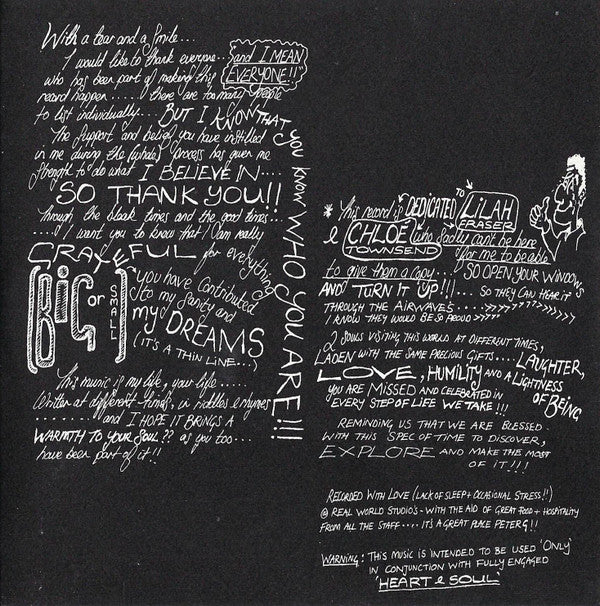 With a tear and a smile...
I would like to thank everyone... and I MEAN EVERYONE!!
who has been part of making this
record happen..... if there are too many people
to list individually... BUT I KNOW THAT YOU KNOW WHO YOU ARE!!!
The support and belief you have instilled
in me during the (whole) process has given me
strength to do what I BELIEVE IN....
SO THANK YOU!!
Through the bleak times and the good times...
...I want you to know that I am really
GRATEFUL for everything
[BIG or SMALL]
you have contributed
to my sanity and
my DREAMS
(IT'S A THIN LINE...)
This music is my life, your life.....
Written at different times, in riddles & rhymes
and I HOPE IT BRINGS A
WARMTH TO YOUR SOUL?? as you too....
have been part of it!!
* This record is DEDICATED TO LILAH FRASER
& CHLOE TOWNSEND who sadly can't be here
for me to be able
to give them a copy.... SO OPEN YOUR WINDOWS
AND TURN IT UP!!!... SO THEY CAN HEAR IT
THROUGH THE AIRWAVES.....
I KNOW THEY WOULD BE SO PROUD
2 SOULS VISITING THIS WORLD AT DIFFERENT TIMES,
LADEN WITH THE SAME PRECIOUS GIFTS.... LAUGHTER,
LOVE, HUMILITY AND A LIGHTNESS OF BEING
YOU ARE MISSED AND CELEBRATED IN
EVERY STEP OF LIFE WE TAKE!!!
REMINDING US THAT WE ARE BLESSED
WITH THIS SPEC OF TIME TO DISCOVER,
EXPLORE AND MAKE THE MOST
OF IT!!!
RECORDED WITH LOVE (LACK OF SLEEP + OCCASIONAL STRESS!!)
@ REAL WORLD STUDIO'S - WITH THE AID OF GREAT FOOD + HOSPITALITY
FROM ALL THE STAFF.... IT'S A GREAT PLACE PETER G!!
WARNING: THIS MUSIC IS INTENDED TO BE USED 'ONLY'
IN CONJUNCTION WITH FULLY ENGAGED
'HEART & SOUL'